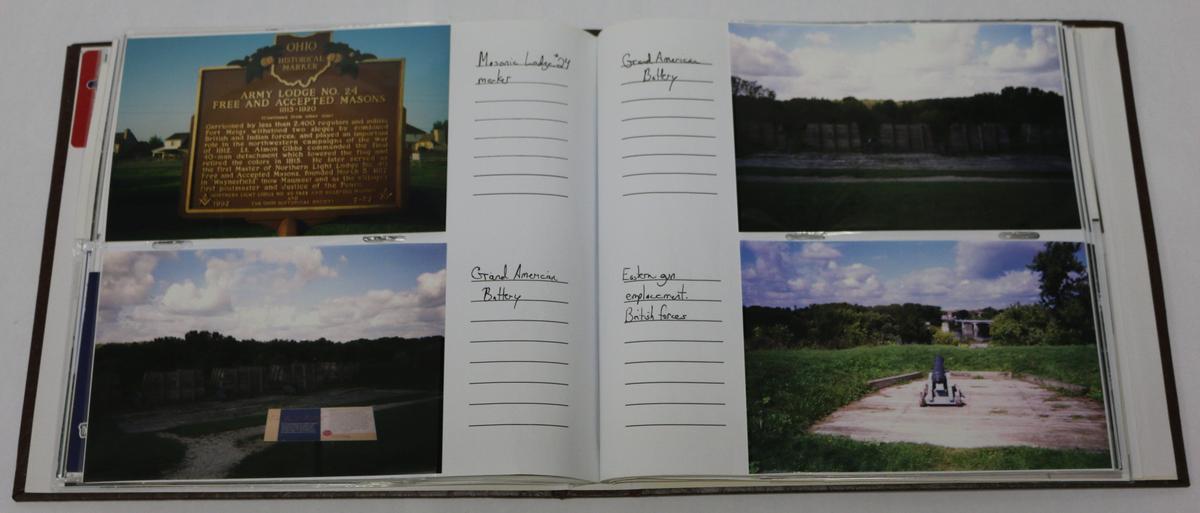 OHIO
HISTORICAL
MARKER
ARMY LODGE NO. 24
FREE AND ACCEPTED MASONS
1813-1920
(Continued from other side)
Garrisoned by less than 2,400 regulars and militia,
Fort Meigs withstood two sieges by combined
British and Indian forces, and played an important
role in the northwestern campaigns of the War
of 1812. Lt. Almon Gibbs commanded the final
40-man detachment which lowered the flag and
retired the colors in 1815. He later served as
the first Master of Northern Light Lodge No. 40
Free and Accepted Masons, founded March 5, 1817
in Waynesfield (now Maumee) and as the village's
first postmaster and Justice of the Peace.
NORTHERN LIGHT LODGE NO. 40 FREE AND ACCEPTED MASONS
AND
1992 THE OHIO HISTORICAL SOCIETY
Masonic Lodge #24
marker
Grand American
Battery
Grand American
Battery
Eastern gun
emplacement.
British forces